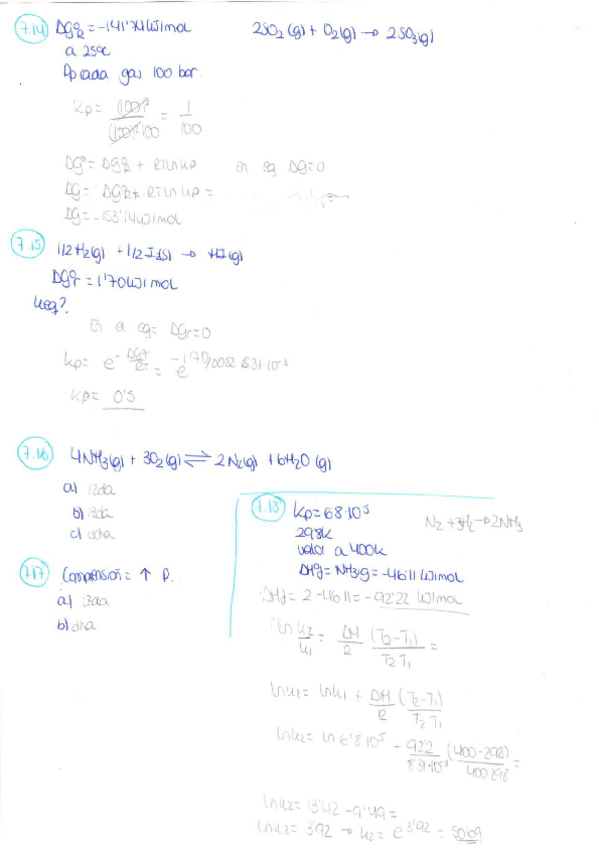 7.14 ΔGºr = -141'74 kJ/mol 2SO2 (g) + O2(g) → 2SO3(g)
a 25ºC
Ppiada gas 100 bar.
Kp = (100)² / (100)² 100 = 1/100
ΔGº = ΔGºr + RTln Kp en eq ΔG=0
ΔG = ΔGºr + RTln Kp =
ΔG = -153'14 kJ/mol
7.15 1/2 H2(g) + 1/2 I2(s) → HI(g)
ΔGºr = 1'70 kJ/mol
Keq?
En el eq = ΔGr=0
Kp = e^- ΔGºr/RT = e^-1'70/0082 8'31·10^-3
Kp = 0'5
7.16 4NH3(g) + 3O2(g) ⇌ 2N2(g) + 6H2O (g)
a) izda
b)
c)
7.17 Compresión = ↑ P.
a) izda
b) dha
7.18 Kp = 6'8·10^5 N2 + 3H2 → 2NH3
298K
valor a 400K
ΔHºf = NH3g = -46'11 kJ/mol
ΔHf = 2 · -46'11 = -92'22 kJ/mol
ln K2/K1 = ΔH/R (T2-T1)/T2 T1 =
ln K2 = ln K1 + ΔH/R (T2-T1)/T2 T1
ln K2 = ln 6'8·10^5 - 92'2/8'31·10^-3 (400-298)/400 298 =
ln K2 = 13'42 - 9'49 =
ln K2 = 3'92 → K2 = e^3'92 = 50'69